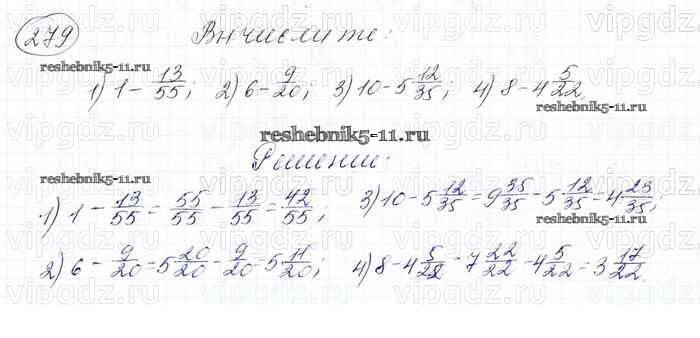 279 Вычислите:
reshebnik5-11.ru
1) 1 - 13/55; 2) 6 - 9/20; 3) 10 - 5 12/35; 4) 8 - 4 5/22.
reshebnik5-11.ru
reshebnik5-11.ru
Решение:
reshebnik5-11.ru
1) 1 - 13/55 = 55/55 - 13/55 = 42/55; 3) 10 - 5 12/35 = 9 35/35 - 5 12/35 = 4 23/35;
reshebnik5-11.ru
2) 6 - 9/20 = 5 20/20 - 9/20 = 5 11/20; 4) 8 - 4 5/22 = 7 22/22 - 4 5/22 = 3 17/22.
vipgdz.ru